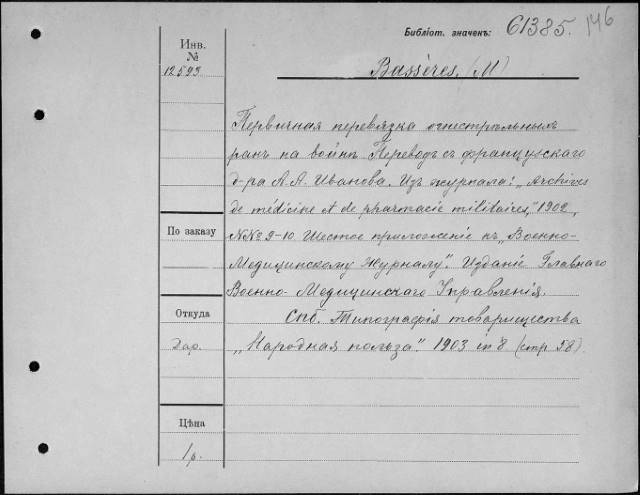 Библіот. значенъ: 61385. 146
Инв.
№
12593
Bassères. (М)
Первичная перевязка огнестрѣльныхъ
ранъ на войнѣ. Переводъ съ французскаго
д-ра А.А. Иванова. Изъ журнала: „Archives
de médicine et de pharmacie militaires," 1902,
№№ 9-10. Шестое приложеніе къ „Военно-
По заказу
Медицинскому Журналу". Изданіе Главнаго
Военно-Медицинскаго Управленія.
Откуда
Спб. Типографія товарищества
Дар.
„Народная польза". 1903 in 8. (стр 58)
Цѣна
1 р.